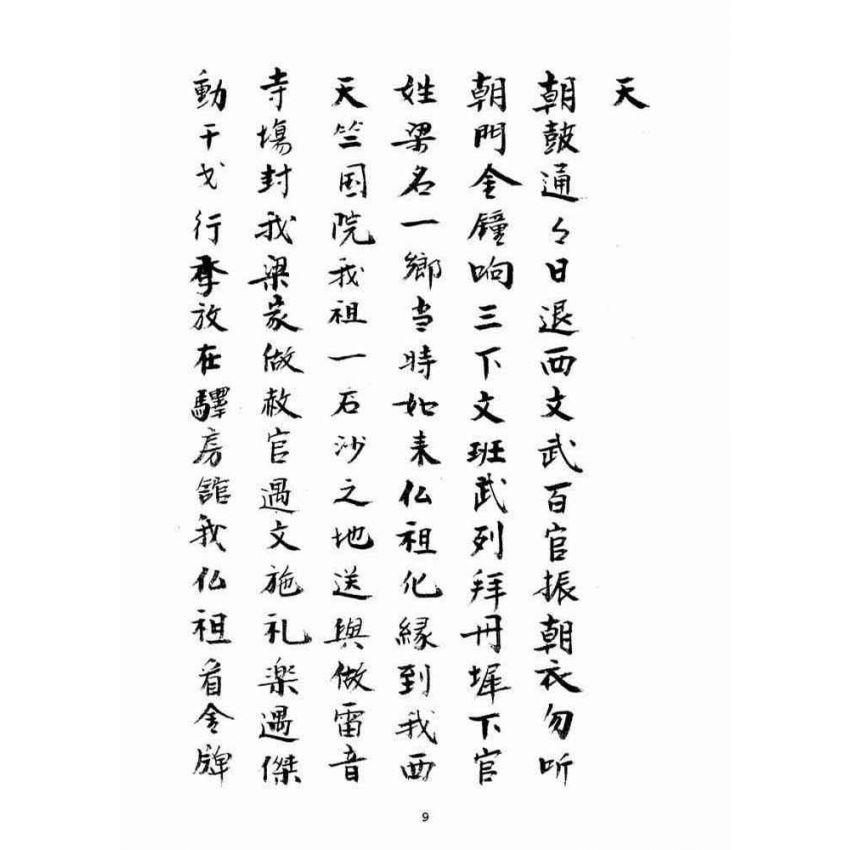 天
朝鼓通々日退西文武百官振朝衣勿听
朝門金鐘响三下文班武列拜丹墀下官
姓梁名一鄉当時如来仏祖化緣到我西
天竺国院我祖一石沙之地送與做雷音
寺塲封我梁家做赦官遇文施礼楽遇傑
動干戈行李放在驛房舘我仏祖看金牌
9